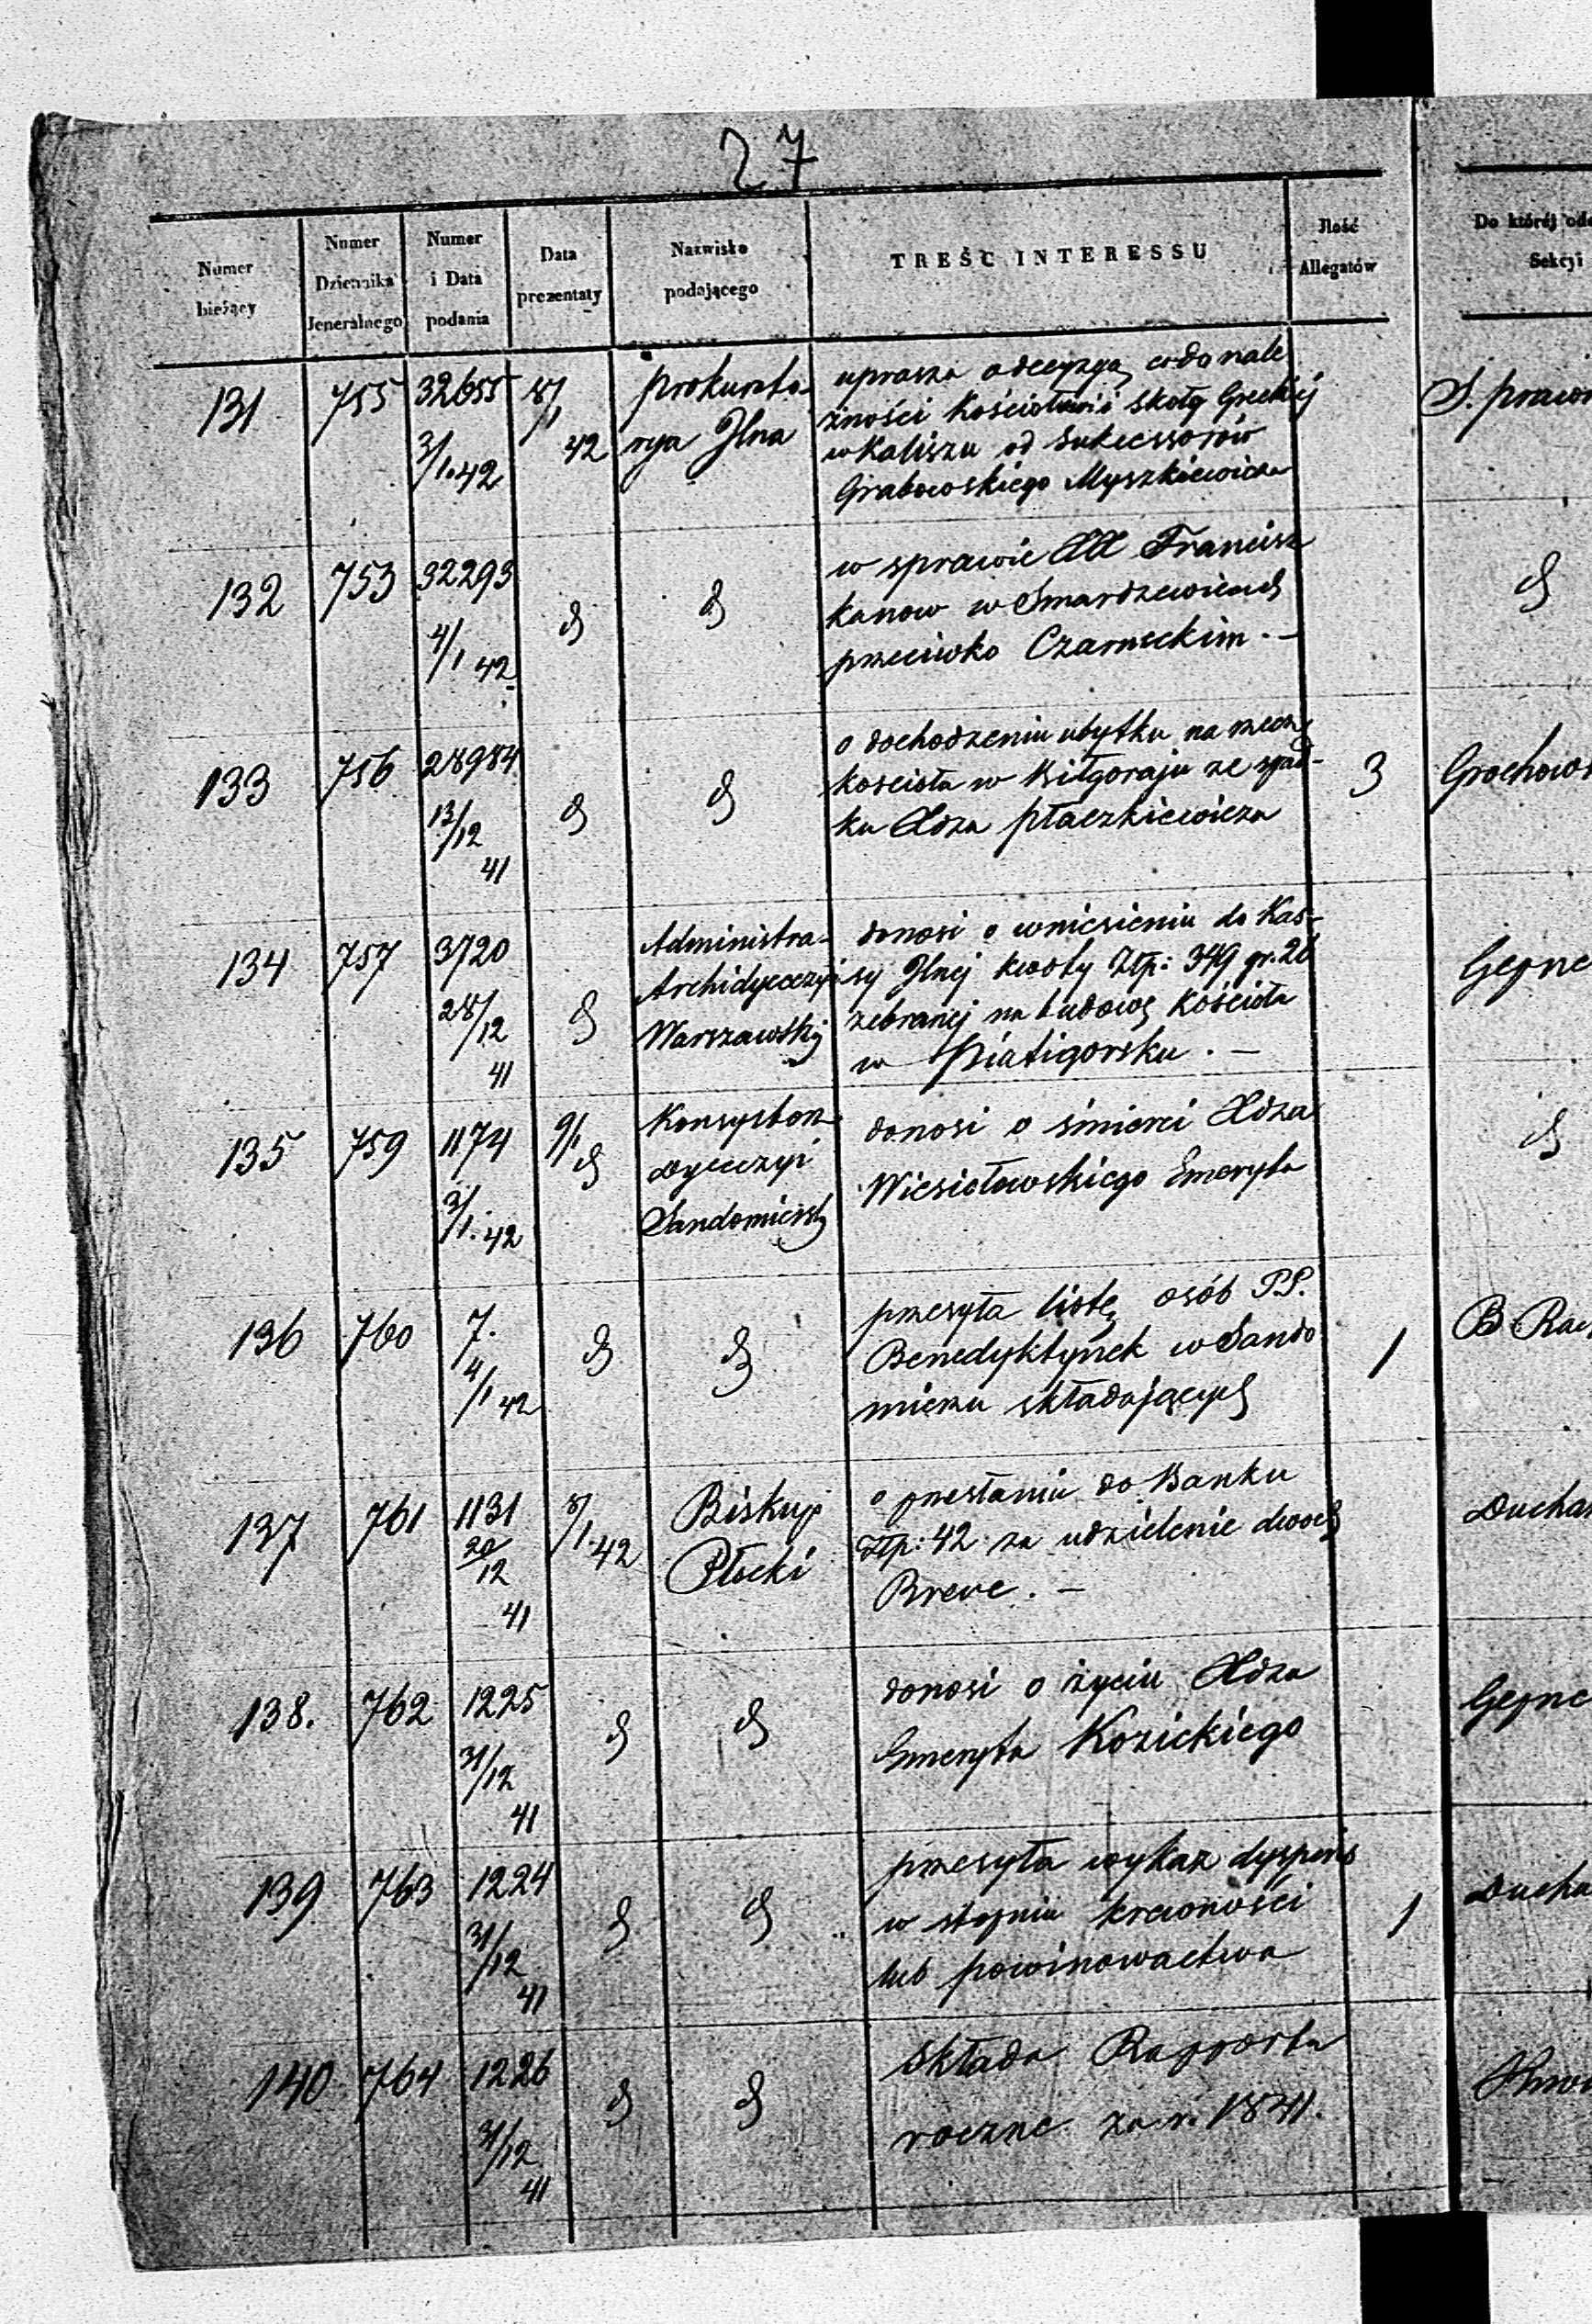 27
Numer
bieżący
Numer
Dziennika
Jeneralnego
Numer
i Data
podania
Data
prezentaty
Nazwisko
podającego
TREŚC INTERESSU
Jlość
Allegatów
Do której
Sekcyi
131
755
32655
3/1.42
8/1 42
Prokurato-
rya Jlna
uprasza o decyzyą co do nale
żności Kościołowi i szkoły Greckiej
w Kaliszu od Sukcessorów
Grabowskiego Myszkiewicza
S. prawn
132
753
32293
4/1 42
d
d
w sprawie XX Francisz
kanow w Smardzewicach
przeciwko Czarneckim. —
d
133
756
28984
13/12
41
d
d
o dochodzeniu ubytku na rzecz
kościoła w Biłgoraju ze spad-
ku Xdza Płaczkiewicza
3
Grochows
134
757
3720
28/12
41
d
Administra-
Archidyecezyi
Warszawskiej
donosi o wniesieniu do Kas-
sy Jlnej kwoty Złp: 349 gr. 26
zebranej na budowę Kościoła
w Piatigorsku. —
Gepne
135
759
1174
3/1.42
9/1 d
Konsystorz
Dyecezyi
Sandomierski
donosi o śmierci Xdza
Wiesiołowskiego Emeryta
d
136
760
7.
4/1 42
d
d
przesyła listę osób PP.
Benedyktynek w Sando
mierzu składających
1
B. Rac
137
761
1131
20/12
41
8/1.42
Biskup
Płocki
o przesłaniu do Banku
Złp: 42 za udzielenie dwoch
Breve. —
Duchow
138.
762
1225
31/12
41
d
d
donosi o życiu Xdza
Emeryta Kozickiego
Gepne
139
763
1224
31/12
41
d
d
przesyła wykaz dyspens
w stopniu krewności
lub powinowactwa
1
Ducho
140
764
1226
31/12
41
d
d
Składa Rapporta
roczne za r. 1841.